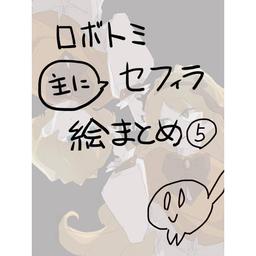 ロボトミ
主に セフィラ
絵まとめ⑤